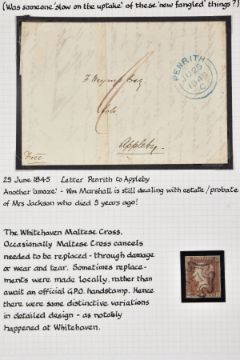 (Was someone 'slow on the uptake' of these 'new fangled' things?)
PENRITH
JU 25
1845
C
Esq
Appleby
Free
25 June 1845 Letter Penrith to Appleby
Another 'amaze' - Wm Marshall is still dealing with estate/probate
of Mrs Jackson who died 5 years ago!
The Whitehaven Maltese Cross.
Occasionally Maltese Cross cancels
needed to be replaced - through damage
or wear and tear. Sometimes replace-
ments were made locally, rather than
await an official G.P.O. handstamp. Hence
there were some distinctive variations
in detailed design - as notably
happened at Whitehaven.